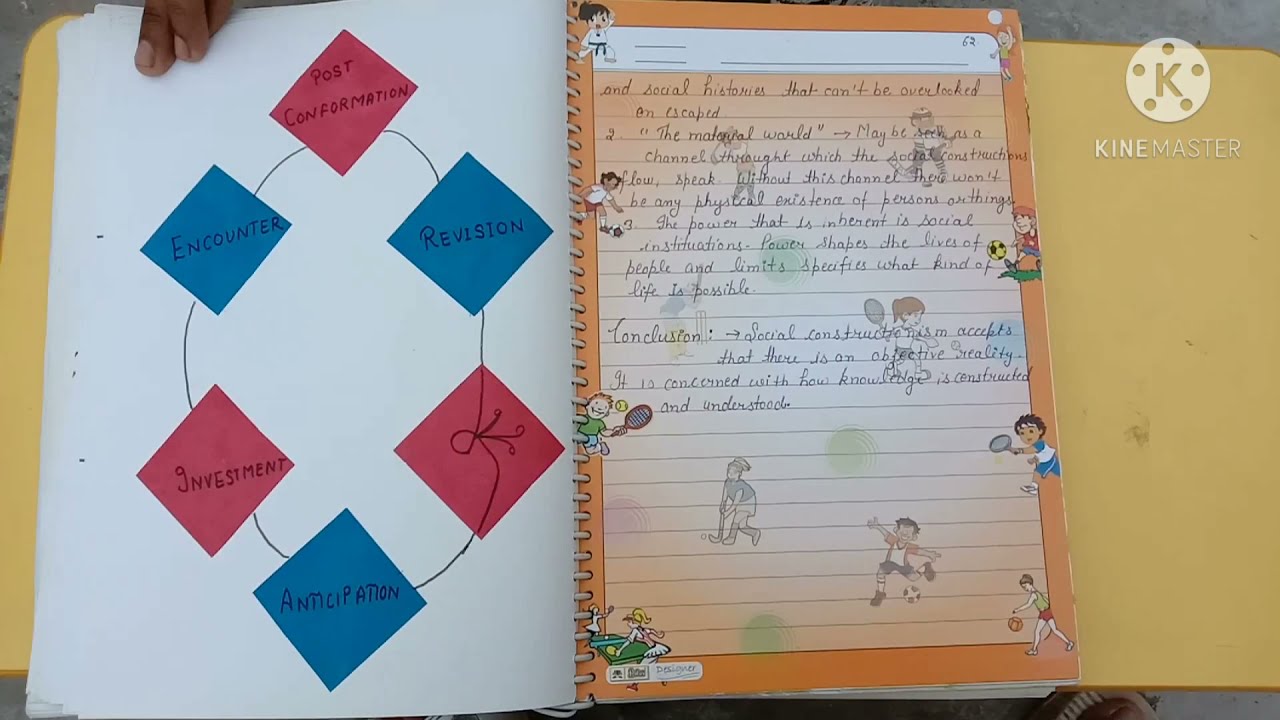 POST
CONFORMATION
ENCOUNTER
REVISION
INVESTMENT
ANTICIPATION
62
and social histories that can't be overlooked
on escaped
2. "The material world" → May be seen as a
channel throught which the social constructions
flow, speak. Without this channel there won't
be any physical existence of persons or things.
3. The power that is inherent is social
instituations. Power shapes the lives of
people and limits specifies what kind of
life is possible.
Conclusion : → Social constructionism accepts
that there is an objective reality.
It is concerned with how knowledge is constructed
and understood.
Designer
K
KINEMASTER